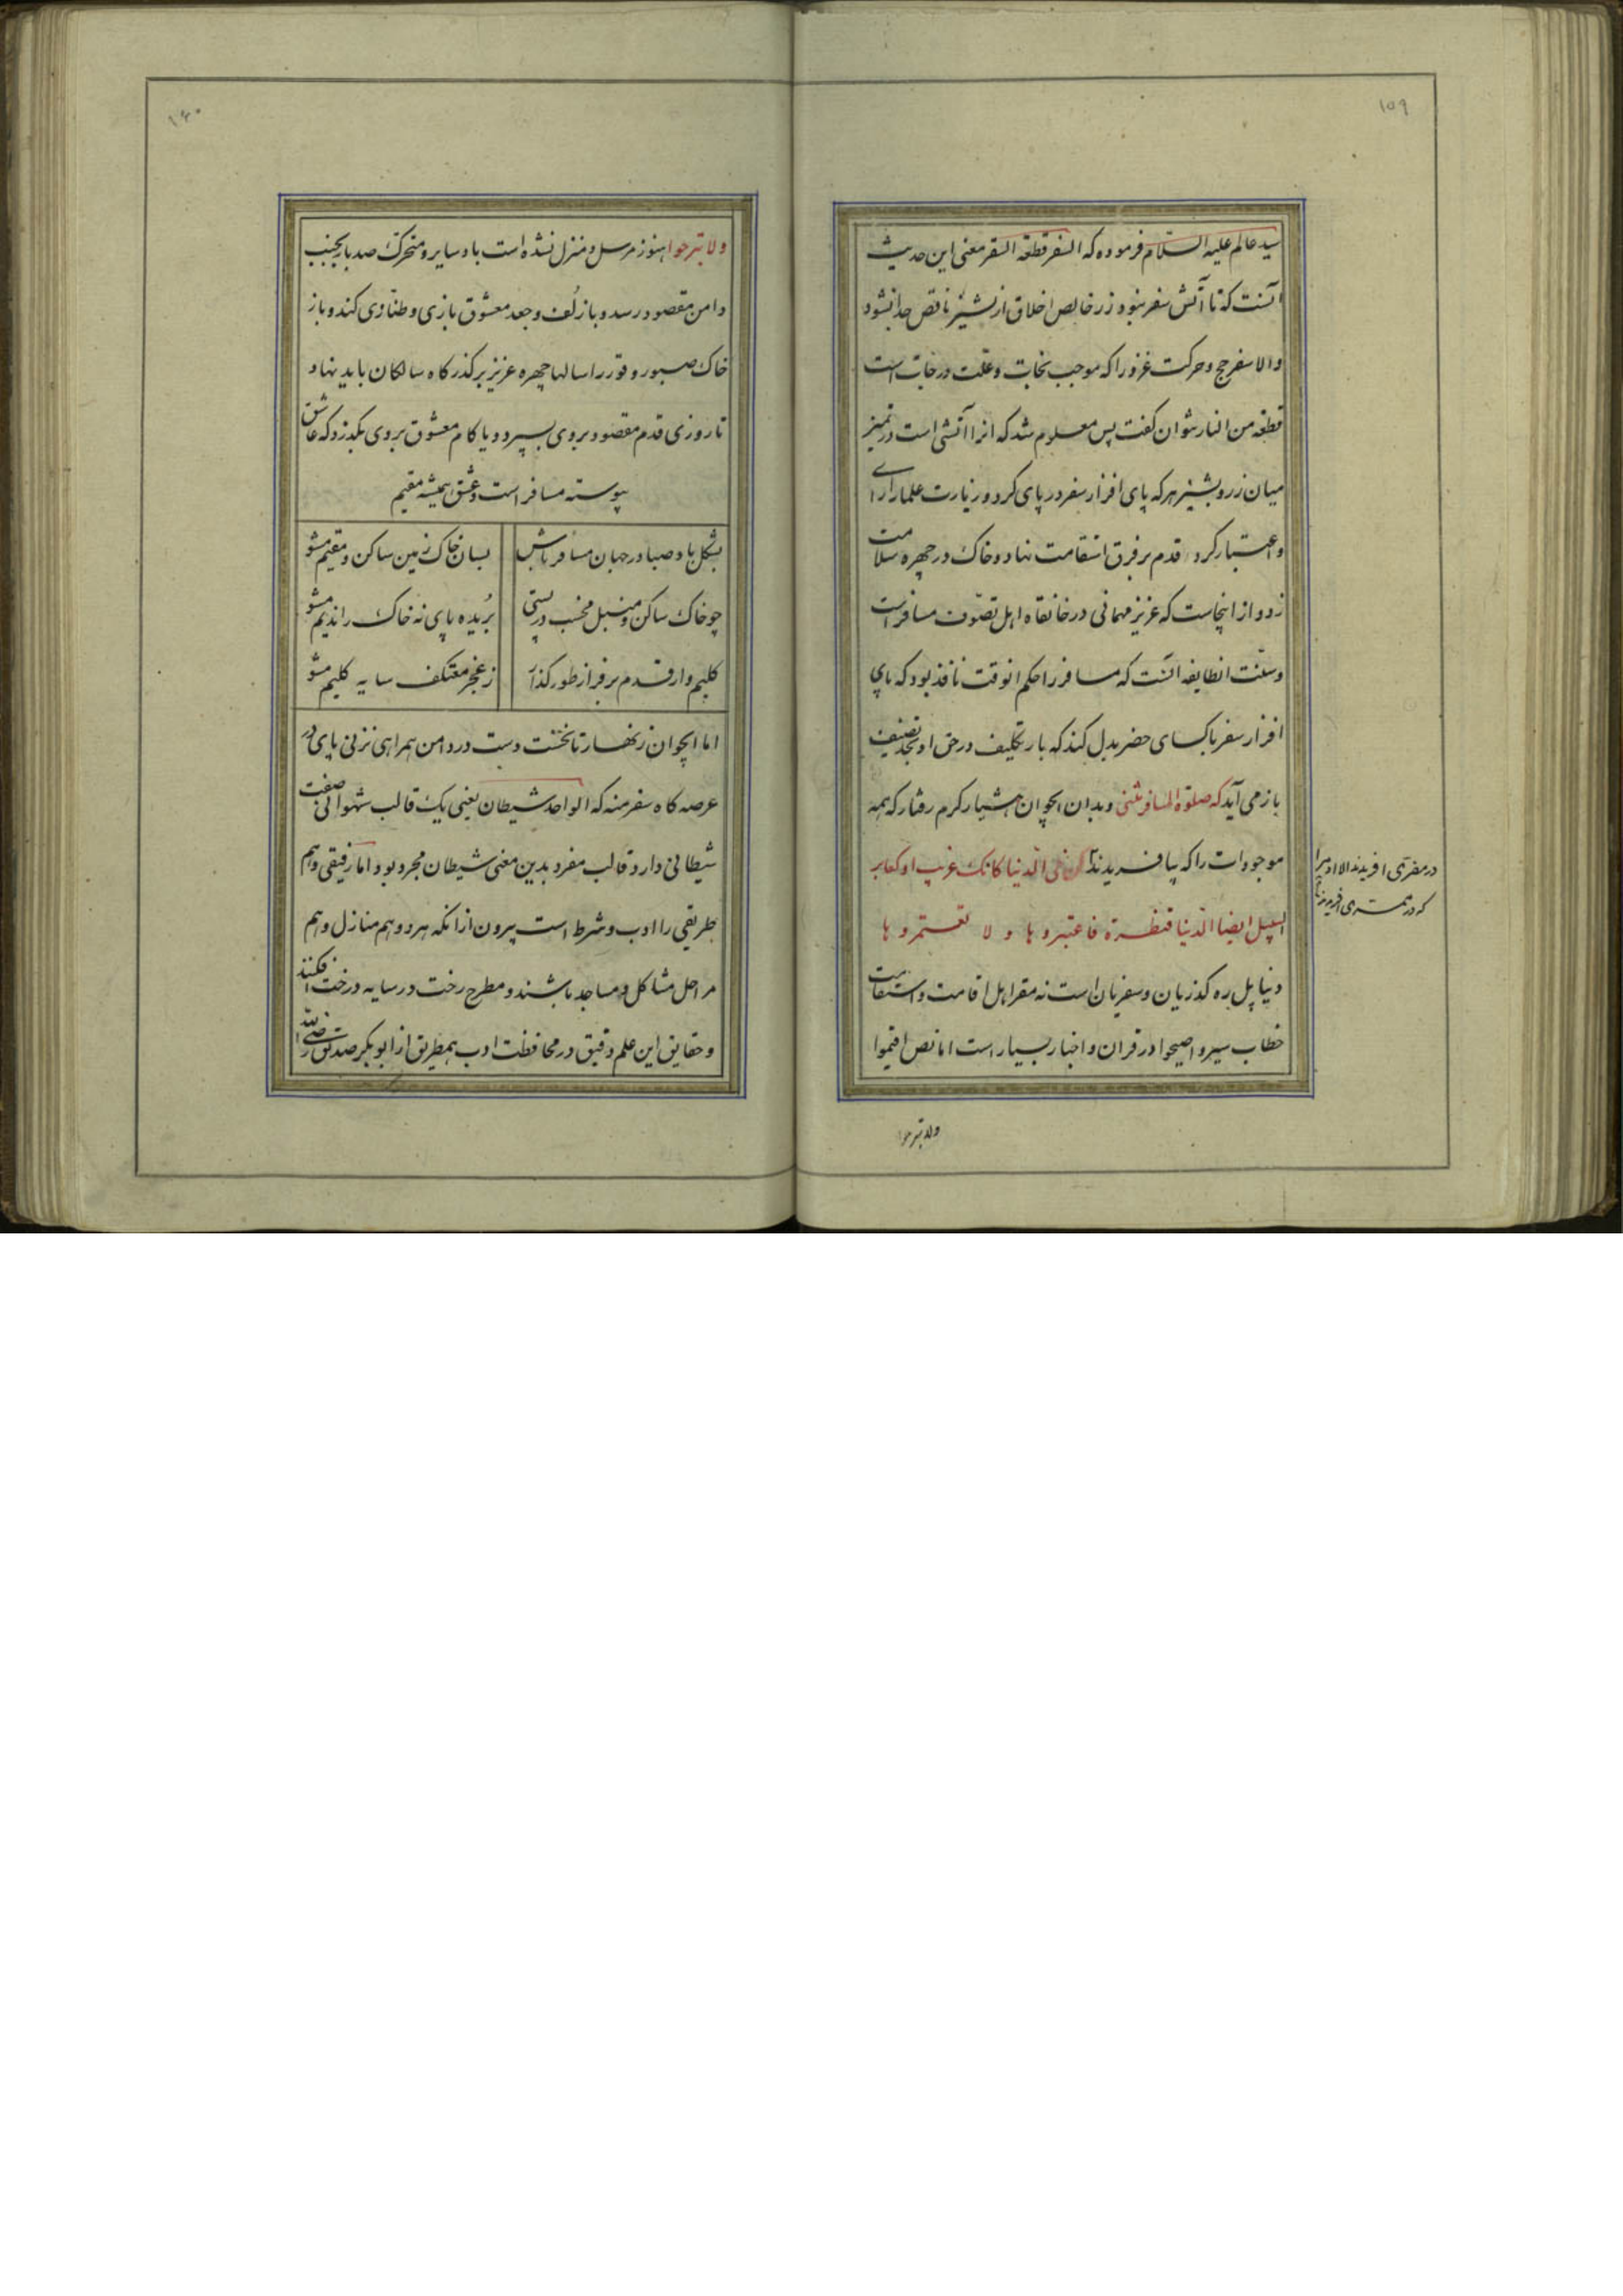 ۱۵۹
سید عالم علیه السلام فرموده که السفر قطعة السقر معنی این حدیث
آنست که تا آتش سفر نبود زر خالص اخلاق از شبیز ناقص جدا نشود
والا سفر حج و حرکت غزو را که موجب نجات و علت درجات است
قطعة من النار نتوان گفت پس معلوم شد که انرا آتشی است در تمیز
میان زر و شبیز هر که پای افزار سفر در پای کرد و زیارت علما را رای
و اعتبار کرد قدم بر فرق استقامت نهاد و خاک در چهره سلامت
زد و از اینجاست که عزیز مهمانی در خانقاه اهل تصوف مسافر است
و سنت انطایفه انست که مسافر را حکم انوقت نافذ بود که پای
افزار سفر با کسای حضر بدل کند که بار تکلیف در حق او بحد تصنیف
باز می آید که صلوة المسافر مثنی و بدان ایجوان هشیار کرم رفتار که همه
موجودات را که بیافریدند کن فی الدنیا کانک غریب او کعابر
السبیل ایضا الدنیا قنطرة فاعتبروها و لا تعتمروها
دنیا پل ره کذریان و سفریان است نه مقر اهل اقامت و استقامت
خطاب سیروا صیحوا در قران و اخبار بسیار است اما نص اقیموا
در مقری افریدند الا ادمیرا
که در ممری افریدند
ولا تبرحوا
۱۶۰
ولا تبرحوا هنوز مرسل و منزل نشده است باد سایر و متحرک صد بار بجنبد
دامن مقصود رسد و با زلف و جعد معشوق بازی و طنازی کند و باز
خاک صبور وقور را سالها چهره عزیز بر کذرکاه سالکان باید نهاد
تا روزی قدم مقصود بروی بسپرد و یا کام معشوق بروی بکذرد که عاشق
پیوسته مسافر است و عشق همیشه مقیم
بشکل باد صبا در جهان مسافر باش بسان خاک زمین ساکن و مقیم مشو
چو خاک ساکن و منبل مخسب در پستی بریده پای نه خاک راندیم مشو
کلیم وار قدم بر فراز طور کذار ز عجز معتکف سایه کلیم مشو
اما ایجوان زنهار تا نخست دست در دامن همراهی نزنی پای در
عرصه کاه سفر منه که الواحد شیطان یعنی یک قالب شهوانی صفت
شیطانی دارد و قالب مفرد بدین معنی شیطان مجرد بود اما رفیقی و هم
طریقی را ادب و شرط است بیرون از انکه هر دو هم منازل و هم
مراحل مشاکل و مساجد باشند و مطرح رخت در سایه درخت افکنند
و حقایق این علم دقیق در محافظت ادب همطریق از ابوبکر صدیق رضی الله